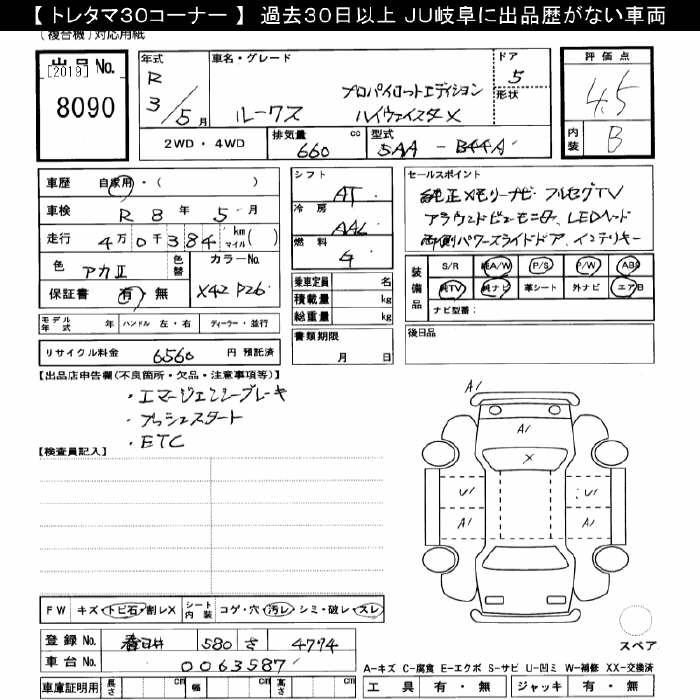 【トレタマ30コーナー】 過去30日以上 JU岐阜に出品歴がない車両
(複合機)対応用紙
出品 No.
[2019]
8090
年式
R
3/5月
車名・グレード
ルークス
プロパイロットエディション
ハイウェイスターX
ドア
5
形状
2WD・4WD
排気量 660 cc
型式 5AA - B44A
評価点
4.5
内装 B
車歴 自家用・( )
車検 R 8 年 5 月
走行 4万0千384 km マイル( )
色 アカII 色替
カラーNo.
X42 P26
保証書 有・無
モデル年式 年 ハンドル 左・右 ディーラー・並行
リサイクル料金 6560 円 預託済
シフト AT
冷房 AAC
燃料 G
乗車定員 名
積載量 kg
総重量 kg
書類期限
月 日
セールスポイント
純正メモリーナビ フルセグTV
アラウンドビューモニター、LEDヘッド
両側パワースライドドア、インテリキー
装備品
S/R 純A/W P/S P/W ABS
純TV 純ナビ 革シート 外ナビ エアB
ナビ型番:
後日品
【出品店申告欄(不良箇所・欠品・注意事項等)】
・エマージェンシーブレーキ
・プッシュスタート
・ETC
【検査員記入】
A1
A1
X
U1 U1
A1 A1
FW キズ・トビ石・割レX シート内装 コゲ・穴・汚レ・シミ・破レ・スレ
登録 No. 春日井 580 さ 4774
車台 No. 0063587
車庫証明用 長さ cm 幅 cm 高さ cm
スペア
A-キズ C-腐食 E-エクボ S-サビ U-凹ミ W-補修 XX-交換済
工具 有・無 ジャッキ 有・無